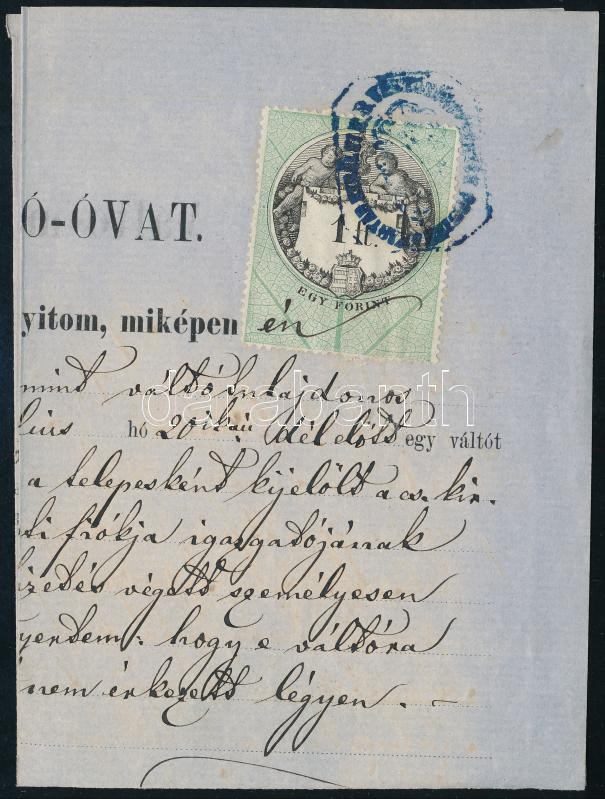 Ó-ÓVAT.
1 ft.
EGY FORINT
yitom, miképen én
mint váltótulajdonos
lius hó 20ikán délelőtt egy váltót
a telepesként kijelölt a cs. kir.
ti fiókja igazgatójának
izetés végett személyesen
yertem: hogy e váltóra
nem érkezett légyen. –
darabanth